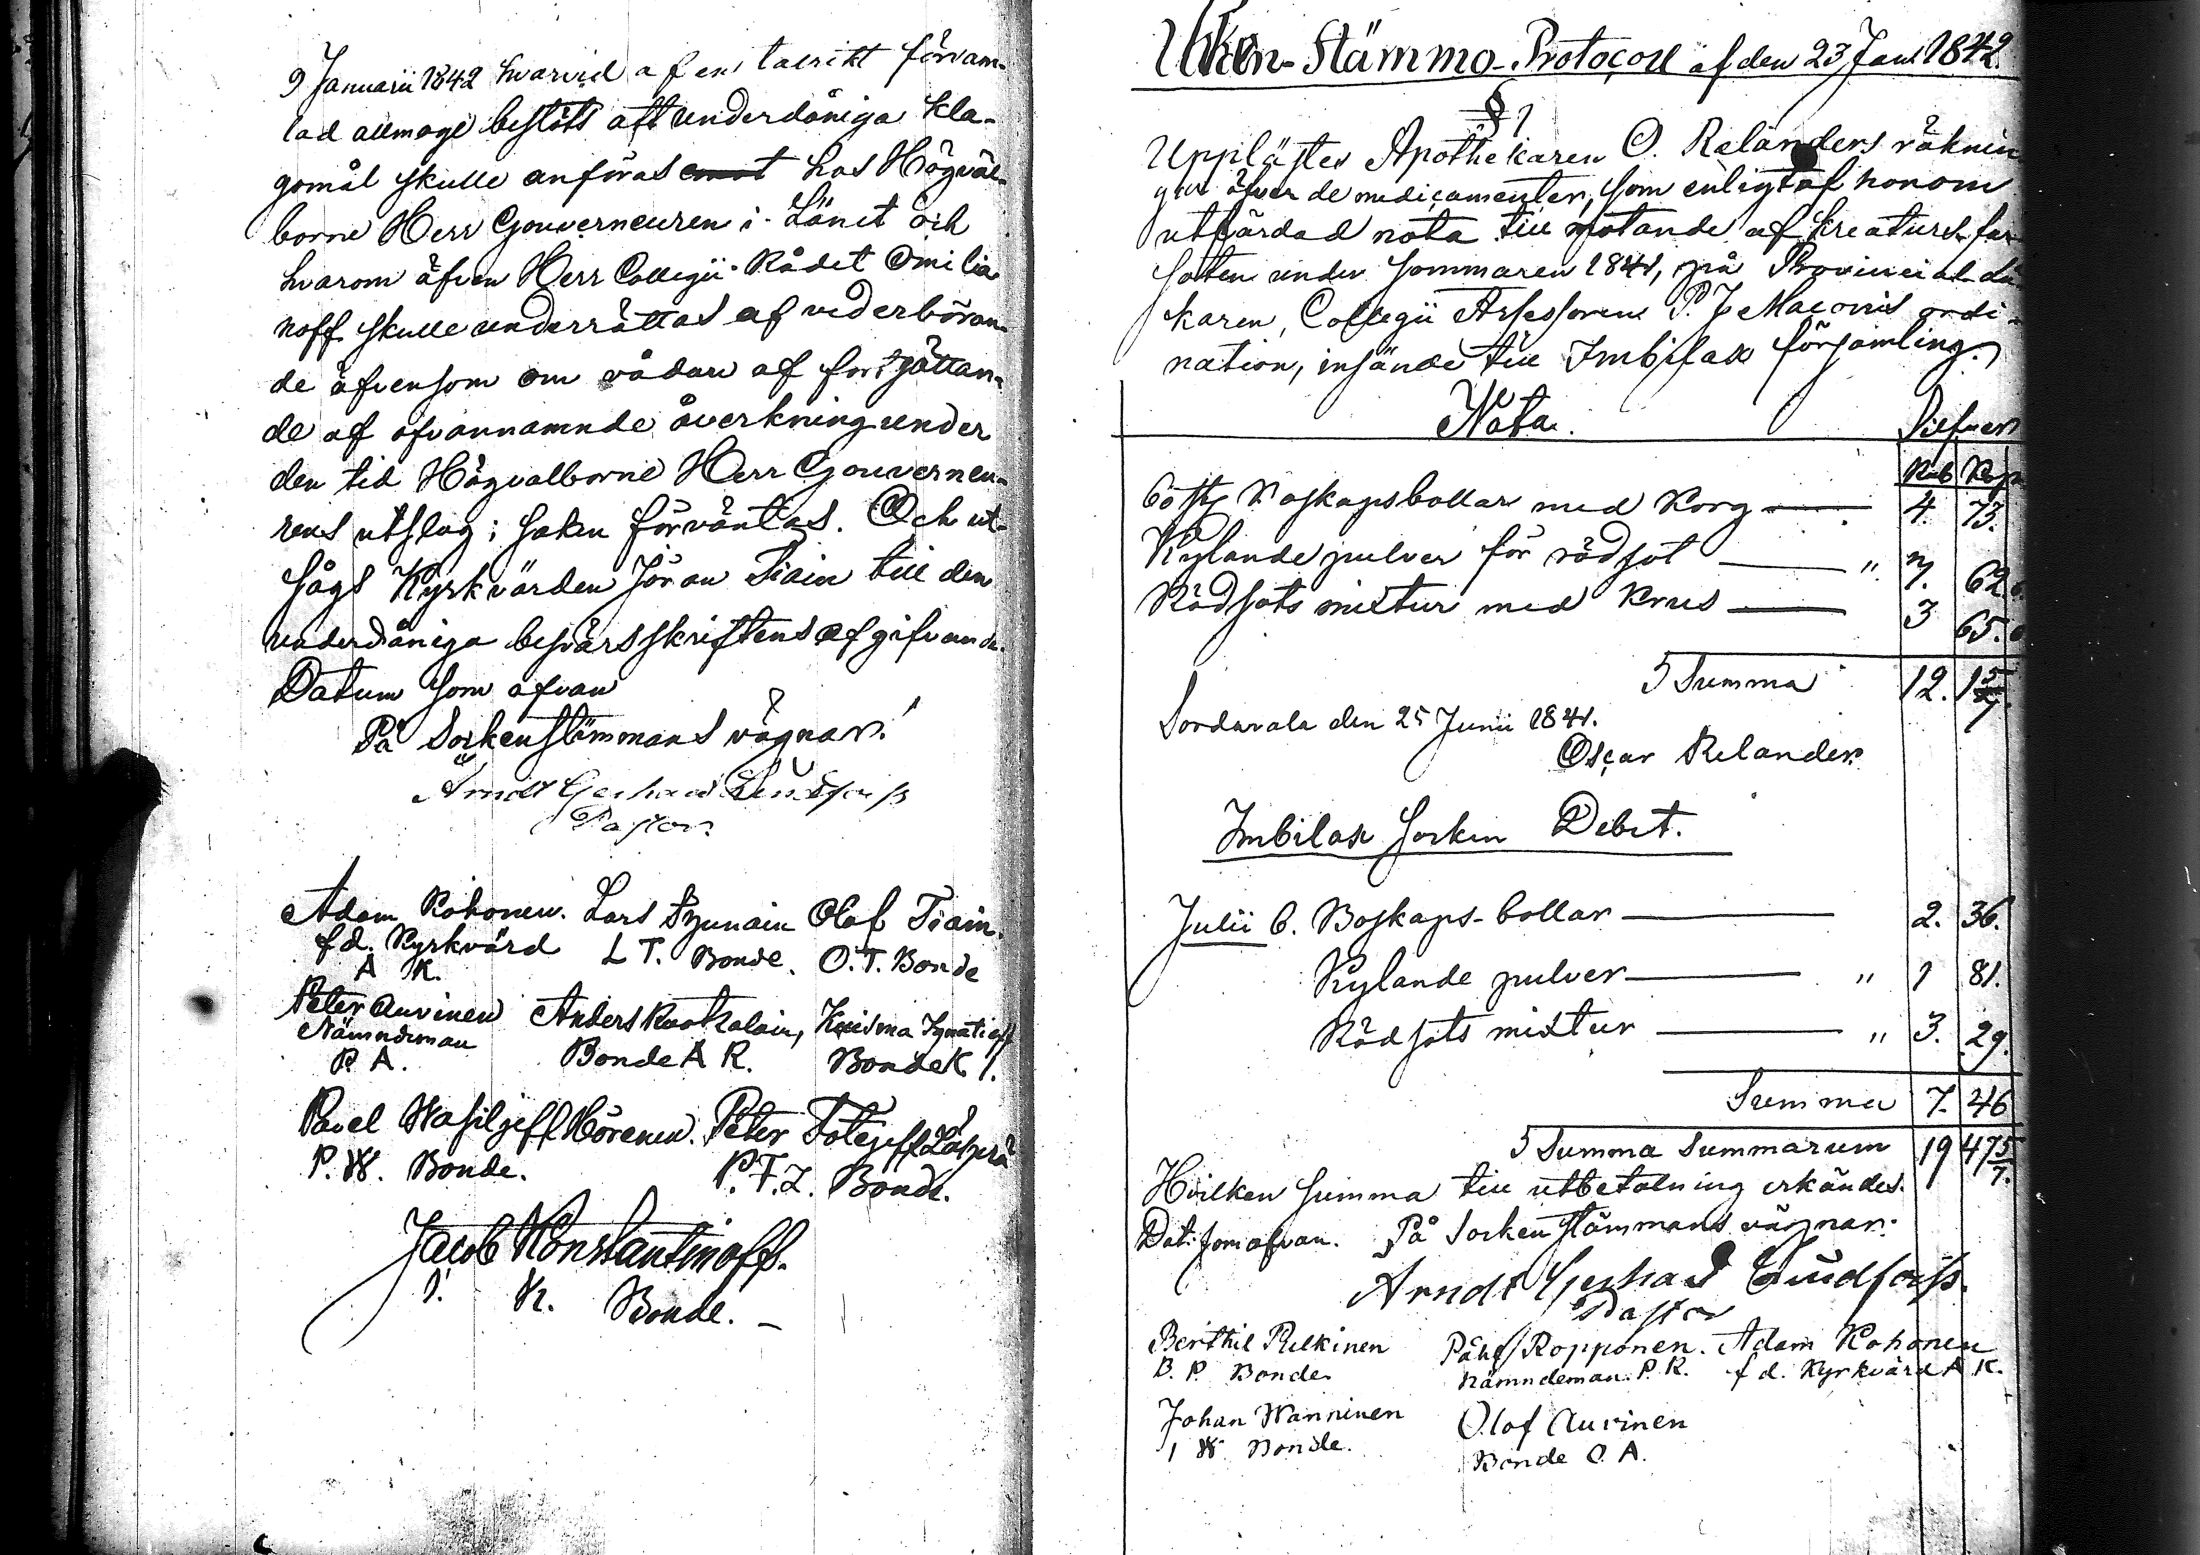 9 Januarii 1842 hvarvid af en talrikt församm-
lad allmoge beslöts att underdåniga kla-
gomål skulle anföras emot hos Högväl-
borne Herr Gouverneuren i Länet och
hvarom äfven Herr Collegii-Rådet Omilia
noff skulle underrättas af vederböran-
de äfvensom om vådan af fortsättan-
de af ofvannämnde åverkning under
den tid Högvälborne Herr Gouverneu-
rens utslag i saken förväntas. Och ut-
sågs Kyrkvärden Jöran Tiain till den
underdåniga besvärsskriftens afgifvande.
Datum som ofvan
På Sockenstämmans vägnar!
Arndt Gerhard
Pastor.
Adam Kohonen. Lars Olof Tiain.
f d. Kyrkvärd L T. Bonde. O.T. Bonde
A K.
Peter Auvinen Anders Kuisma Ignatieff
Nämndeman Bonde A R. Bonde K I.
P. A.
Pavel Wasiljeff Hörenen. Peter Fotejeff
P. W. Bonde. P.F.L. Bonde.
Jacob Konstantinoff.
J. K. Bonde.
Socken-Stämmo-Protocoll af den 23 Jan 1842.
§ 1
Upplästes Apothekaren O. Relanders räknin
gar öfver de medicamenter, som enligt af honom
utfärdad nota till motande af kreaturs far
soten under sommaren 1841, på Provincial-Lä
karen, Collegii Assessoren P. J. ordi-
nation, insände till Imbilax församling.
Nota. Silfver
Rub Kop
60 st Boskapsbollar med Korg 4. 73.
Kylande pulver för rödsot " 62
Rödsots mixtur med Krus 3 65.
Summa 12. 15/7.
Sordavala den 25 Junii 1841.
Oscar Relander.
Imbilax Socken Debet.
Julii 6. Boskaps-bollar 2. 36.
Kylande pulver " 1 81.
Rödsots mixtur " 3. 29.
Summa 7. 46
Summa Summarum 19 47 5/7.
Hvilken summa till utbetalning erkändes.
Dat. som ofvan. På Sockenstämmans vägnar.
Arndt Gerhard
Pastor
Berthil Pulkinen Påhl Ropponen. Adam Kohonen
B. P. Bonde Nämndeman. P. R. f d. Kyrkvärd A K.
Johan Wänninen Olof Auvinen
I W. Bonde. Bonde O. A.